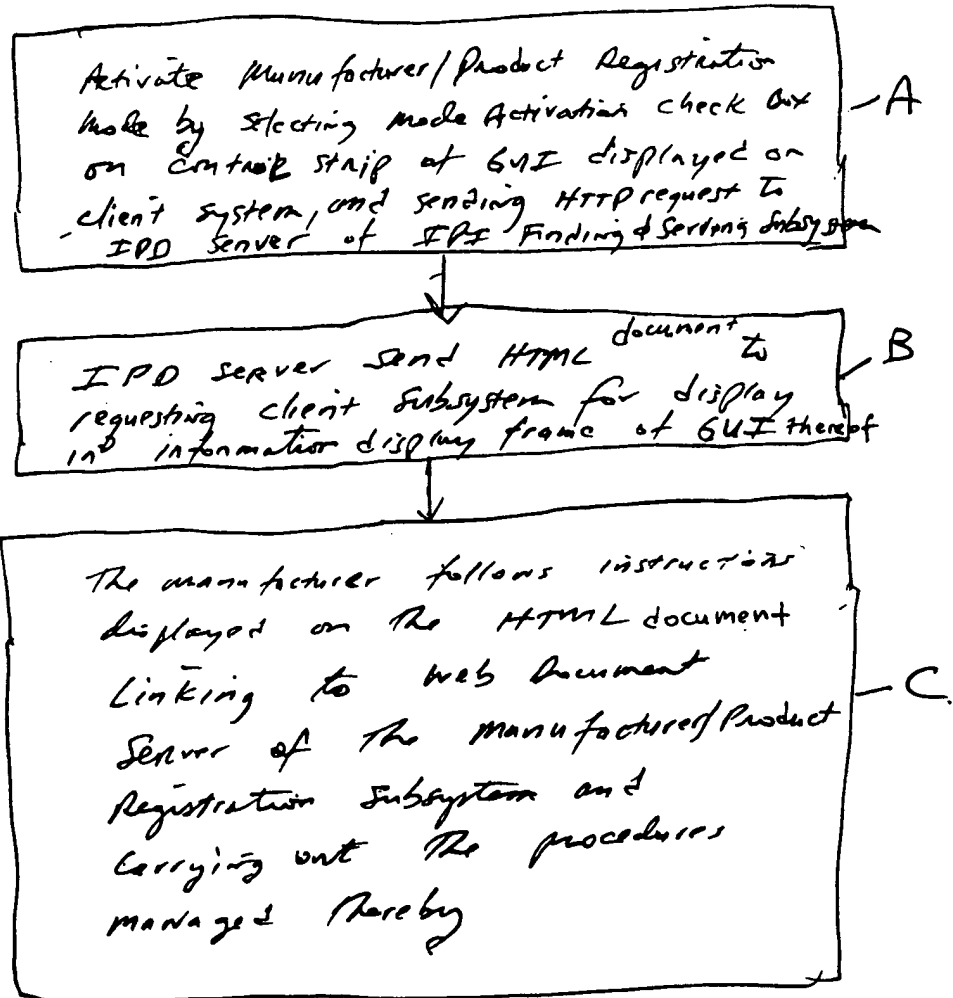 Activate Manufacturer/Product Registration
Mode by Selecting Mode Activation Check Box
on Control Strip of GUI displayed on
client system, and sending HTTP request to
IPD Server of IPI Finding & Serving Subsystem
A
IPD Server send HTML document to
requesting client Subsystem for display
in information display frame of GUI thereof
B
The manufacturer follows instructions
displayed on the HTML document
Linking to Web Document
Server of the Manufacturer/Product
Registration Subsystem and
Carrying out the procedures
managed thereby
C.